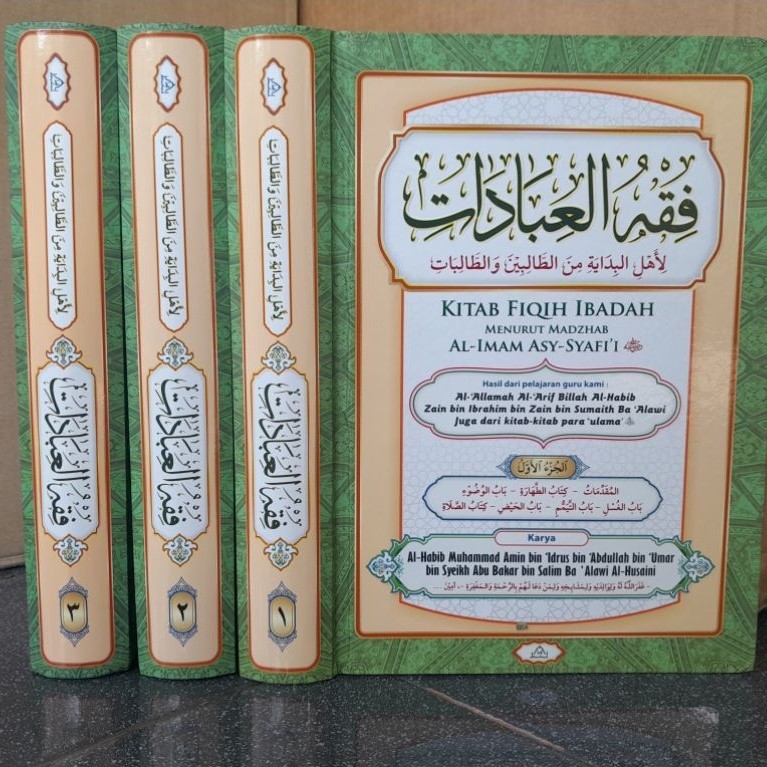 فِقْهُ الْعِبَادَاتِ
لِأَهْلِ البِدَايَةِ مِنَ الطَّالِبِيْنَ وَالطَّالِبَاتِ
KITAB FIQIH IBADAH
MENURUT MADZHAB
AL-IMAM ASY-SYAFI'I
Hasil dari pelajaran guru kami :
Al-'Allamah Al-'Arif Billah Al-Habib
Zain bin Ibrahim bin Zain bin Sumaith Ba 'Alawi
Juga dari kitab-kitab para 'ulama'
الجُزْءُ الأَوَّلُ
المُقَدِّمَاتُ - كِتَابُ الطَّهَارَةِ - بَابُ الوُضُوْءِ
بَابُ الغُسْلِ - بَابُ التَّيَمُّمِ - بَابُ الحَيْضِ - كِتَابُ الصَّلَاةِ
Karya
Al-Habib Muhammad Amin bin 'Idrus bin 'Abdullah bin 'Umar
bin Syeikh Abu Bakar bin Salim Ba 'Alawi Al-Husaini
غَفَرَ اللهُ لَهُ وَلِوَالِدَيْهِ وَلِمَشَايِخِهِ وَلِمَنْ دَعَا لَهُمْ بِالرَّحْمَةِ وَالمَغْفِرَةِ ... آمِيْن
لِأَهْلِ البِدَايَةِ مِنَ الطَّالِبِيْنَ وَالطَّالِبَاتِ
فِقْهُ الْعِبَادَاتِ
١
لِأَهْلِ البِدَايَةِ مِنَ الطَّالِبِيْنَ وَالطَّالِبَاتِ
فِقْهُ الْعِبَادَاتِ
٢
لِأَهْلِ البِدَايَةِ مِنَ الطَّالِبِيْنَ وَالطَّالِبَاتِ
فِقْهُ الْعِبَادَاتِ
٣